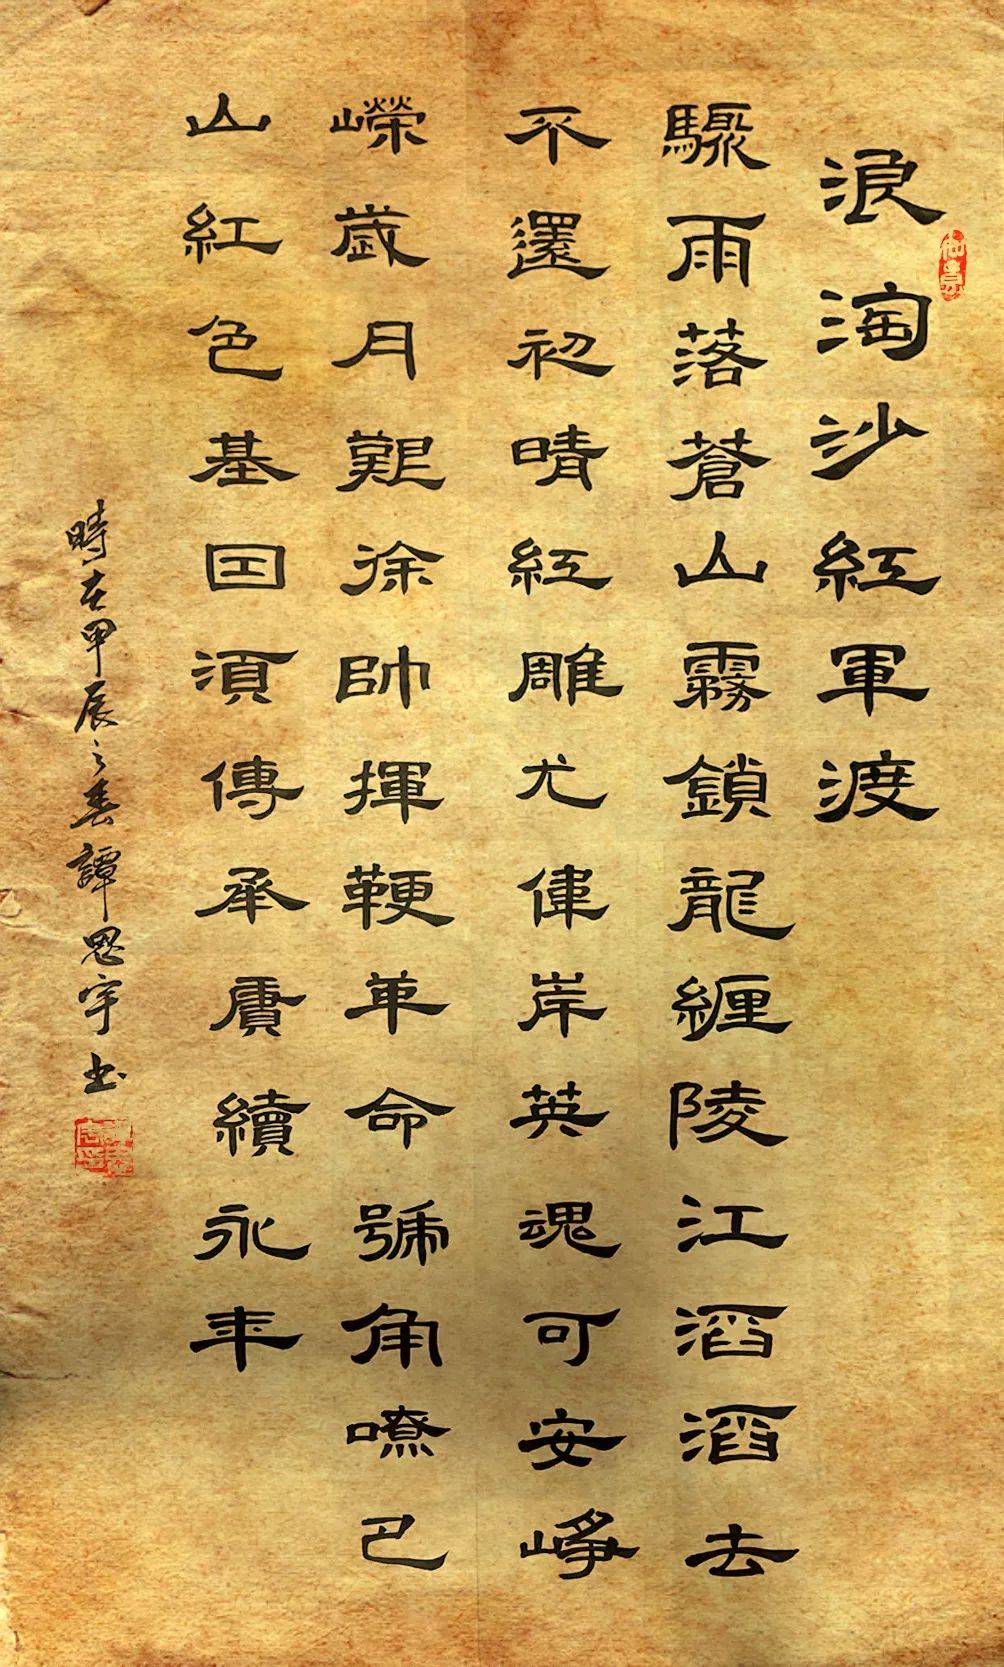 浪淘沙紅軍渡
驟雨落蒼山霧鎖龍纏陵江滔滔去
不還初晴紅雕尤偉岸英魂可安崢
嶸歲月艱徐帥揮鞭革命號角嘹巴
山紅色基因須傳承賡續永年
時在甲辰之春譚思宇书